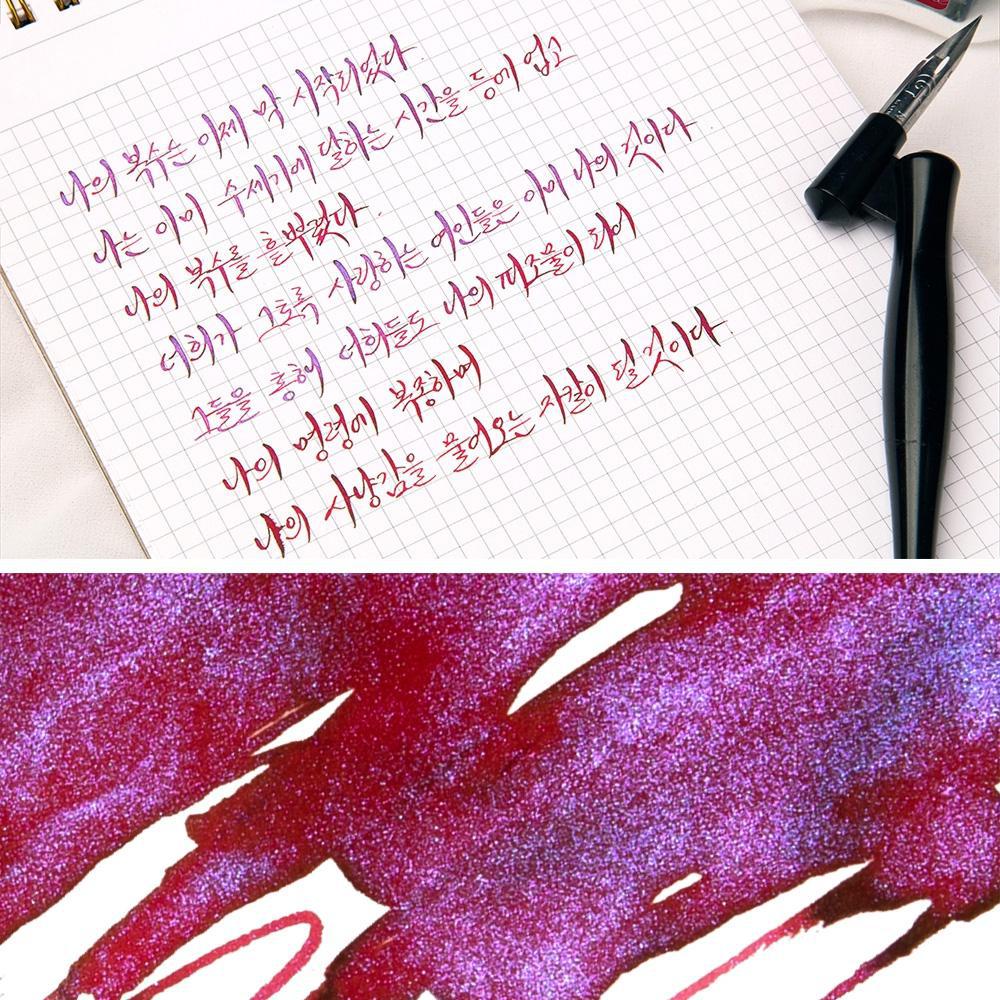 나의 복수는 이제 막 시작되었다.
나는 이미 수세기에 달하는 시간을 등에 업고
나의 복수를 흩뿌렸다.
너희가 그토록 사랑하는 여인들은 이미 나의 것이다
그들을 통해 너희들도 나의 피조물이 되어
나의 명령에 복종하며
나의 사냥감을 물어오는 자칼이 될 것이다.